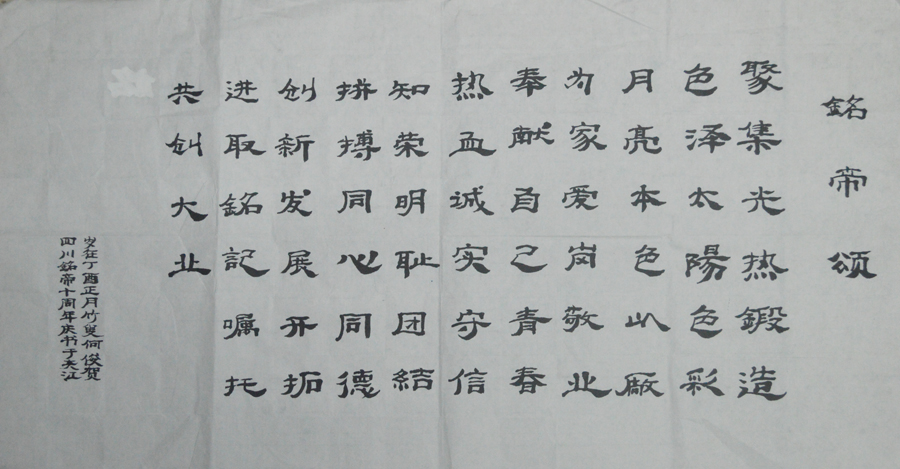 銘帝颂
聚集光热鍛造
色泽太陽色彩
月亮本色以廠
为家爱岗敬业
奉献自己青春
热血诚实守信
知荣明耻团結
拼搏同心同德
创新发展开拓
进取銘記嘱托
共创大业
岁在丁酉正月竹叟何俊贺
四川銘帝十周年庆书于夹江